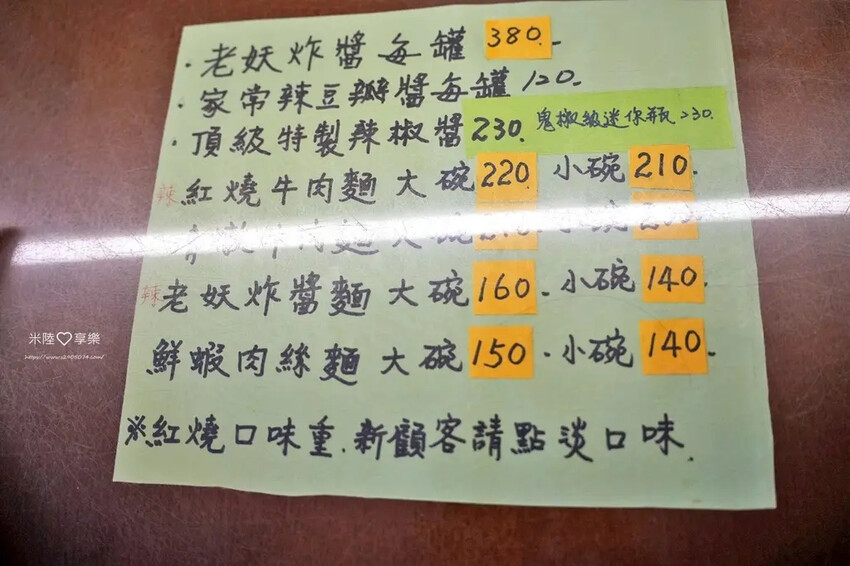 ·老妖炸醬每罐380.
·家常辣豆瓣醬每罐120.
·頂級特製辣椒醬230. 鬼椒級迷你瓶230.
辣 紅燒牛肉麵 大碗220. 小碗210.
牛肉麵 大碗
辣 老妖炸醬麵 大碗160. 小碗140.
鮮蝦肉絲麵 大碗150. 小碗140.
※紅燒口味重.新顧客請點淡口味.
米陸♡享樂